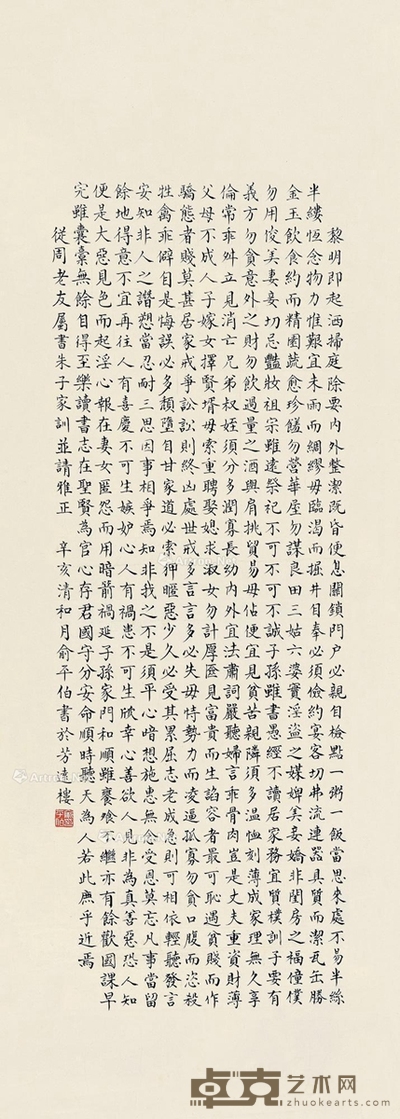 黎明即起洒掃庭除要內外整潔既昏便息關鎖門戶必親自檢點一粥一飯當思來處不易半絲
半縷恆念物力惟艱宜未雨而綢繆毋臨渴而掘井自奉必須儉約宴客切弗流連器具質而潔瓦缶勝
金玉飲食約而精園蔬愈珍饈勿營華屋勿謀良田三姑六婆實淫盜之媒婢美妾嬌非閨房之福僮僕
勿用俊美妻妾切忌豔妝祖宗雖遠祭祀不可不可不誠子孫雖書愚經不讀居家務宜質樸訓子要有
義方勿貪意外之財勿飲過量之酒與肩挑貿易毋佔便宜見貧苦親隣須多溫恤刻薄成家理無久享
倫常乖舛立見消亡兄弟叔姪須分多潤寡長幼內外宜法肅詞嚴聽婦言乖骨肉豈是丈夫重資財薄
父母不成人子嫁女擇賢壻毋索重聘娶媳求淑女勿計厚匳見富貴而生諂容者最可恥遇貧賤而作
驕態者賤莫甚居家戒爭訟訟則終凶處世戒多言言多必失毋恃勢力而凌逼孤寡勿貪口腹而恣殺
牲禽乖僻自是悔誤必多頹墮自甘家道必索狎暱惡少久必受其累屈志老成急則可相依輕聽發言
安知非人之譖愬當忍耐三思因事相爭焉知非我之不是須平心暗想施惠無念受恩莫忘凡事當留
餘地得意不宜再往人有喜慶不可生嫉妒心人有禍患不可生欣幸心善欲人見非為真善惡恐人知
便是大惡見色而起淫心報在妻女匿怨而用暗箭禍延子孫家門和順雖饔飧不繼亦有餘歡國課早
完雖囊橐無餘自得至樂讀書志在聖賢為官心存君國守分安命順時聽天為人若此庶乎近焉
從周老友屬書朱子家訓並請雅正 辛亥清和月俞平伯書於芳遠樓
卓克艺术网
www.zhuokearts.com